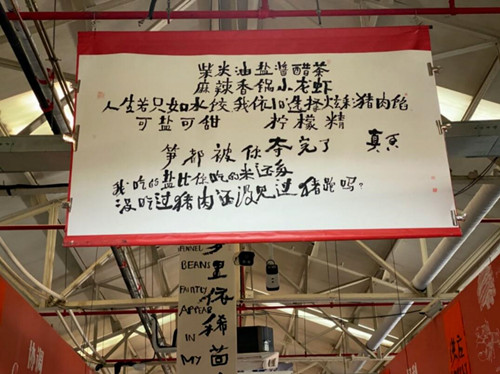 柴米油盐酱醋茶
麻辣香锅小老虾
人生若只如水饺 我依旧选择炫彩猪肉馅
可盐可甜 柠檬精
真香
笋都被你夺完了
我吃的盐比你吃的米还多
没吃过猪肉还没见过猪跑吗?
BEANS
FAINTLY
APPEAR
IN
MY
里依稀茴